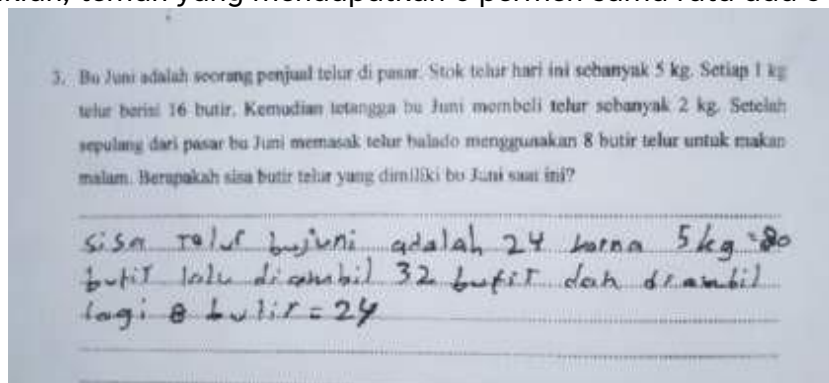 3. Bu Juni adalah seorang penjual telur di pasar. Stok telur hari ini sebanyak 5 kg. Setiap 1 kg
telur berisi 16 butir. Kemudian tetangga bu Juni membeli telur sebanyak 2 kg. Setelah
sepulang dari pasar bu Juni memasak telur balado menggunakan 8 butir telur untuk makan
malam. Berapakah sisa butir telur yang dimiliki bu Juni saat ini?
sisa telur bujuni adalah 24 karna 5kg = 80
butir lalu diambil 32 butir dah diambil
lagi 8 butir = 24